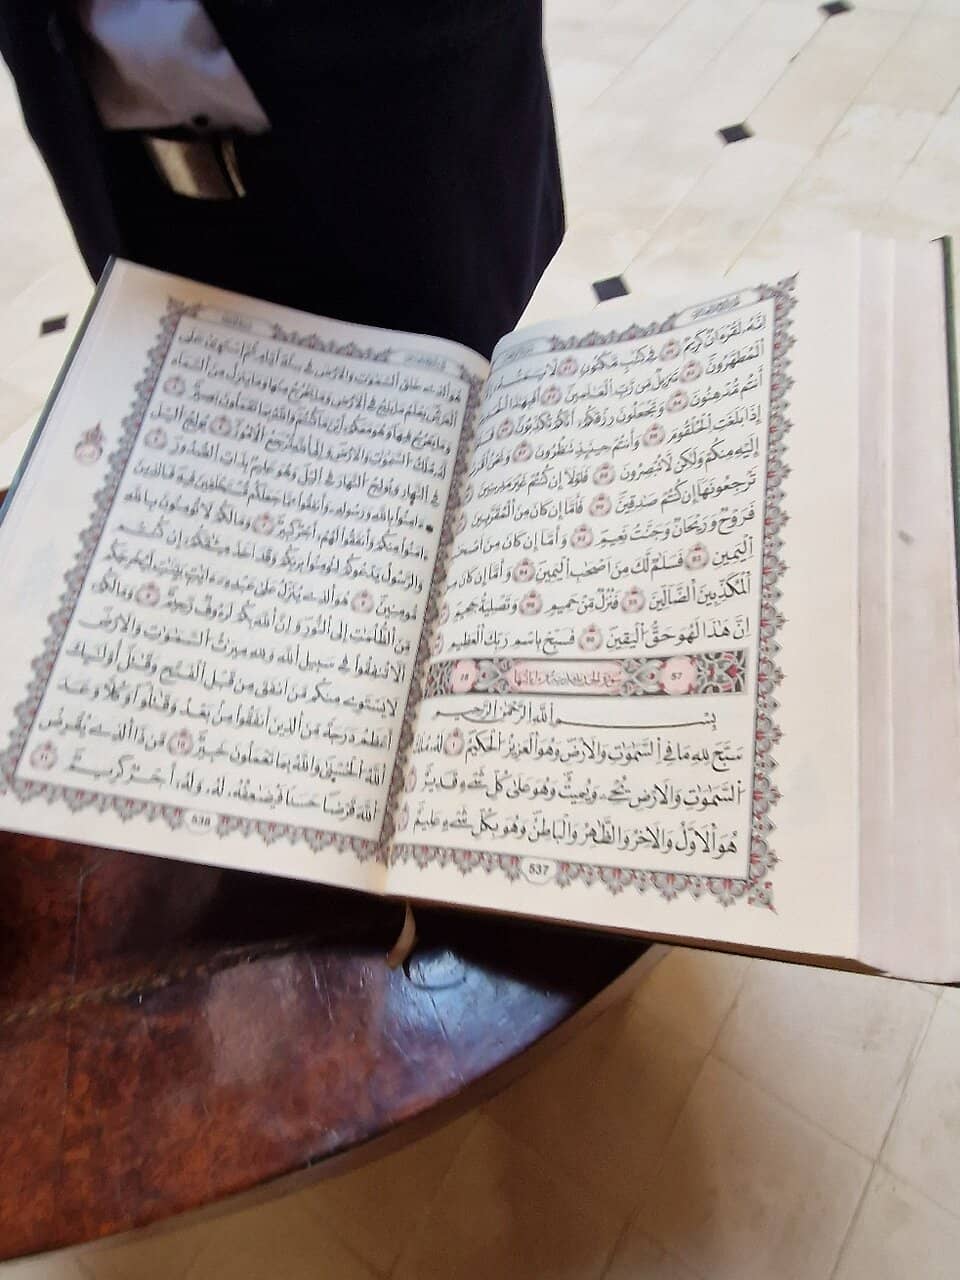 إِنَّهُۥ لَقُرْءَانٌ كَرِيمٌ فِي كِتَٰبٍ مَّكْنُونٍ لَّا يَمَسُّهُۥٓ
ٱلْمُطَهَّرُونَ تَنزِيلٌ مِّن رَّبِّ ٱلْعَٰلَمِينَ أَفَبِهَٰذَا
أَنتُم مُّدْهِنُونَ وَتَجْعَلُونَ رِزْقَكُمْ أَنَّكُمْ تُكَذِّبُونَ
إِذَا بَلَغَتِ ٱلْحُلْقُومَ وَأَنتُمْ حِينَئِذٍ تَنظُرُونَ وَنَحْنُ أَقْرَبُ
إِلَيْهِ مِنكُمْ وَلَٰكِن لَّا تُبْصِرُونَ فَلَوْلَآ إِن كُنتُمْ غَيْرَ مَدِينِينَ
تَرْجِعُونَهَآ إِن كُنتُمْ صَٰدِقِينَ فَأَمَّآ إِن كَانَ مِنَ ٱلْمُقَرَّبِينَ
فَرَوْحٌ وَرَيْحَانٌ وَجَنَّتُ نَعِيمٍ وَأَمَّآ إِن كَانَ مِنْ
ٱلْيَمِينِ فَسَلَٰمٌ لَّكَ مِنْ أَصْحَٰبِ ٱلْيَمِينِ وَأَمَّآ إِن كَانَ
ٱلْمُكَذِّبِينَ ٱلضَّآلِّينَ فَنُزُلٌ مِّنْ حَمِيمٍ وَتَصْلِيَةُ جَحِيمٍ
إِنَّ هَٰذَا لَهُوَ حَقُّ ٱلْيَقِينِ فَسَبِّحْ بِٱسْمِ رَبِّكَ ٱلْعَظِيمِ
57 سورة الحديد
بِسْمِ ٱللَّهِ ٱلرَّحْمَٰنِ ٱلرَّحِيمِ
سَبَّحَ لِلَّهِ مَا فِي ٱلسَّمَٰوَٰتِ وَٱلْأَرْضِ وَهُوَ ٱلْعَزِيزُ ٱلْحَكِيمُ ١ لَهُۥ مُلْكُ
ٱلسَّمَٰوَٰتِ وَٱلْأَرْضِ يُحْيِۦ وَيُمِيتُ وَهُوَ عَلَىٰ كُلِّ شَيْءٍ قَدِيرٌ
هُوَ ٱلْأَوَّلُ وَٱلْءَاخِرُ وَٱلظَّٰهِرُ وَٱلْبَاطِنُ وَهُوَ بِكُلِّ شَيْءٍ عَلِيمٌ
537
هُوَ ٱلَّذِي خَلَقَ ٱلسَّمَٰوَٰتِ وَٱلْأَرْضَ فِي سِتَّةِ أَيَّامٍ ثُمَّ ٱسْتَوَىٰ عَلَى
ٱلْعَرْشِ يَعْلَمُ مَا يَلِجُ فِي ٱلْأَرْضِ وَمَا يَخْرُجُ مِنْهَا وَمَا يَنزِلُ مِنَ ٱلسَّمَآءِ
وَمَا يَعْرُجُ فِيهَا وَهُوَ مَعَكُمْ أَيْنَ مَا كُنتُمْ وَٱللَّهُ بِمَا تَعْمَلُونَ بَصِيرٌ ٤
لَّهُۥ مُلْكُ ٱلسَّمَٰوَٰتِ وَٱلْأَرْضِ وَإِلَى ٱللَّهِ تُرْجَعُ ٱلْأُمُورُ ٥ يُولِجُ ٱلَّيْلَ
فِي ٱلنَّهَارِ وَيُولِجُ ٱلنَّهَارَ فِي ٱلَّيْلِ وَهُوَ عَلِيمٌۢ بِذَاتِ ٱلصُّدُورِ ٦
ءَامِنُوا۟ بِٱللَّهِ وَرَسُولِهِۦ وَأَنفِقُوا۟ مِمَّا جَعَلَكُم مُّسْتَخْلَفِينَ فِيهِ فَٱلَّذِينَ
ءَامَنُوا۟ مِنكُمْ وَأَنفَقُوا۟ لَهُمْ أَجْرٌ كَبِيرٌ ٧ وَمَا لَكُمْ لَا تُؤْمِنُونَ بِٱللَّهِ
وَٱلرَّسُولُ يَدْعُوكُمْ لِتُؤْمِنُوا۟ بِرَبِّكُمْ وَقَدْ أَخَذَ مِيثَٰقَكُمْ إِن كُنتُم
مُّؤْمِنِينَ ٨ هُوَ ٱلَّذِي يُنَزِّلُ عَلَىٰ عَبْدِهِۦٓ ءَايَٰتٍۭ بَيِّنَٰتٍ لِّيُخْرِجَكُم
مِّنَ ٱلظُّلُمَٰتِ إِلَى ٱلنُّورِ وَإِنَّ ٱللَّهَ بِكُمْ لَرَءُوفٌ رَّحِيمٌ ٩ وَمَا لَكُمْ
أَلَّا تُنفِقُوا۟ فِي سَبِيلِ ٱللَّهِ وَلِلَّهِ مِيرَٰثُ ٱلسَّمَٰوَٰتِ وَٱلْأَرْضِ
لَا يَسْتَوِي مِنكُم مَّنْ أَنفَقَ مِن قَبْلِ ٱلْفَتْحِ وَقَٰتَلَ أُو۟لَٰٓئِكَ
أَعْظَمُ دَرَجَةً مِّنَ ٱلَّذِينَ أَنفَقُوا۟ مِنۢ بَعْدُ وَقَٰتَلُوا۟ وَكُلًّا وَعَدَ
ٱللَّهُ ٱلْحُسْنَىٰ وَٱللَّهُ بِمَا تَعْمَلُونَ خَبِيرٌ ١٠ مَّن ذَا ٱلَّذِي يُقْرِضُ
ٱللَّهَ قَرْضًا حَسَنًا فَيُضَٰعِفَهُۥ لَهُۥ وَلَهُۥٓ أَجْرٌ كَرِيمٌ ١١
538